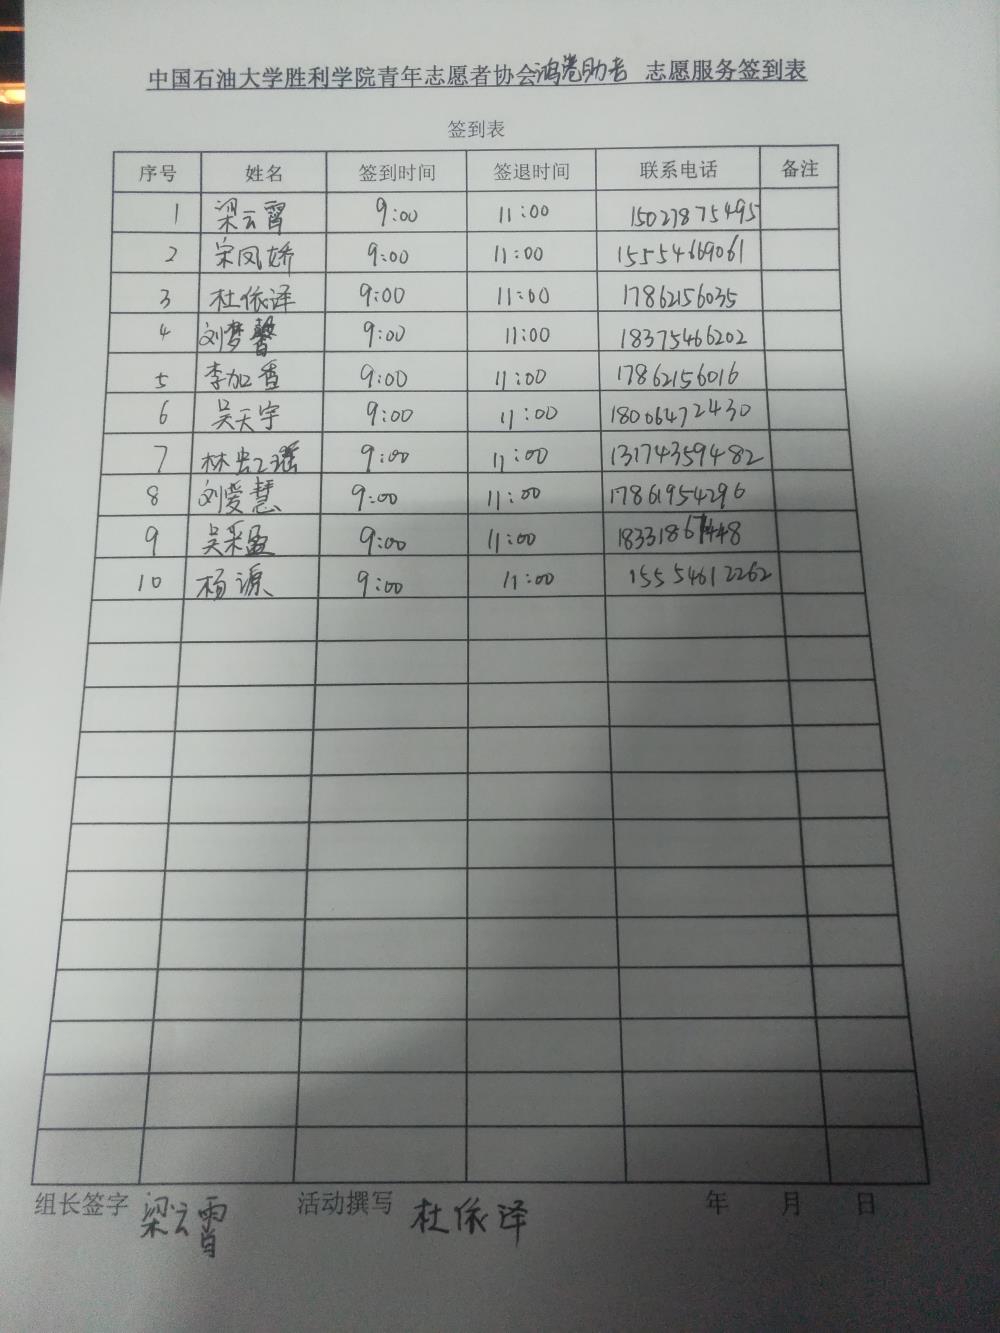 中国石油大学胜利学院青年志愿者协会 志愿服务签到表
签到表
序号 姓名 签到时间 签退时间 联系电话 备注
1 梁云霄 9:00 11:00 15027875495
2 宋凤娇 9:00 11:00 15554669061
3 杜依泽 9:00 11:00 17862156035
4 刘梦馨 9:00 11:00 18375466202
5 李加香 9:00 11:00 17862156016
6 吴天宇 9:00 11:00 18006472430
7 林 瑶 9:00 11:00 13174359482
8 刘爱慧 9:00 11:00 17861954296
9 吴采盈 9:00 11:00 18331867448
10 杨源 9:00 11:00 15554612262
组长签字 梁云霄 活动撰写 杜依泽 年 月 日